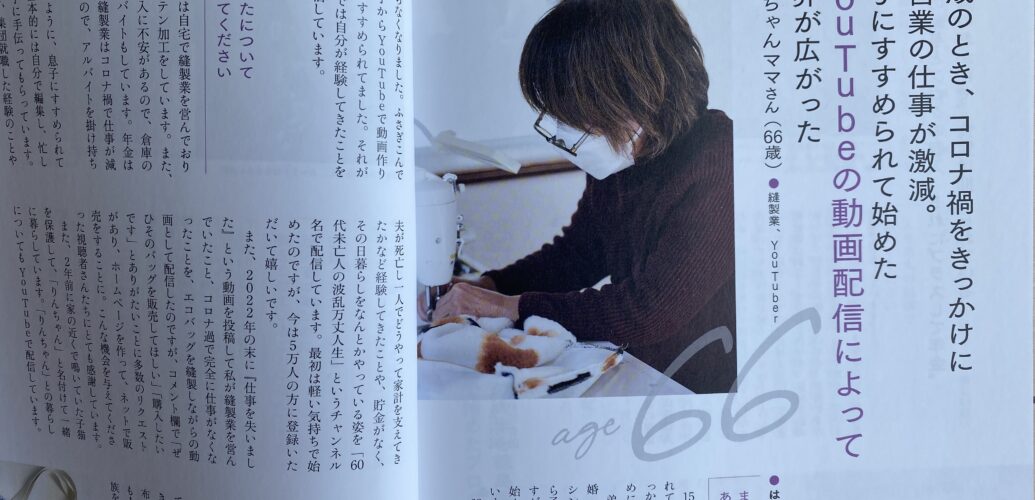 歳のとき、コロナ禍をきっかけに
営業の仕事が激減。
にすすめられて始めた
ouTubeの動画配信によって
界が広がった
ちゃんママさん（66歳）●縫製業、YouTuber
age 66
なくなりました。ふさぎこんで
からYouTubeで動画作り
すすめられてました。それが
では自分が経験してきたことを
信しています。
たについて
てください
は自宅で縫製業を営んでおり
テン加工をしています。また、
入に不安があるので、倉庫の
バイトもしています。年金は
縫製業はコロナ禍で仕事が減
ので、アルバイトを掛け持ち
ように、息子にすすめられて
本的には自分で編集し、忙し
に手伝ってもらっています。
集団就職した経験のことや
夫が死亡し一人でどうやって家計を支えてき
たかなど経験してきたことや、貯金がなく、
その日暮らしをなんとかやっている姿を「60
代未亡人の波乱万丈人生」というチャンネル
名で配信しています。最初は軽い気持ちで始
めたのですが、今は5万人の方に登録いた
だいて嬉しいです。
また、2022年の末に『仕事を失いまし
た』という動画を投稿して私が縫製業を営ん
でいたこと、コロナ過で完全に仕事がなくな
ったことを、エコバッグを縫製しながらの動
画として配信したのですが、コメント欄で「ぜ
ひそのバッグを販売してほしい」「購入したい
です」とありがたいことに多数のリクエスト
があり、ホームページを作って、ネットで販
売をすることに。こんな機会を与えてくださ
った視聴者さんたちにとても感謝しています。
また、2年前に家の近くで鳴いていた子猫
を保護して、「りんちゃん」と名付けて一緒
に暮らしています。「りんちゃん」との暮らし
についてもYouTubeで配信しています。